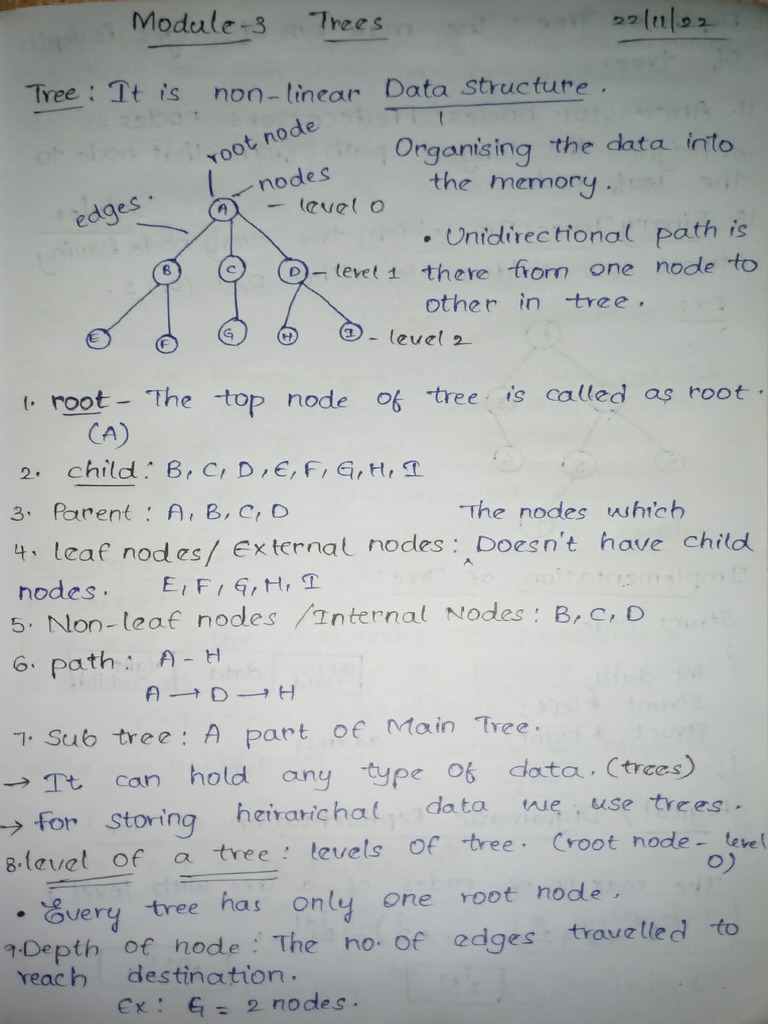 Module-3 Trees 22/11/22
Tree : It is non-linear Data structure .
root node
Organising the data into
the memory .
nodes
edges .
A - level 0
• Unidirectional path is
there from one node to
other in tree .
B C D - level 1
E F G H I - level 2
1. root - The top node of tree is called as root .
(A)
2. child : B, C, D, E, F, G, H, I
3. Parent : A, B, C, D
The nodes which
4. leaf nodes/ External nodes : ^ Doesn't have child
nodes. E, F, G, H, I
5. Non-leaf nodes /Internal Nodes : B, C, D
6. path : A - H
A → D → H
7. Sub tree : A part of Main Tree.
→ It can hold any type of data. (trees)
→ for storing heirarichal data we use trees .
8. level of a tree : levels of tree . (root node - level
0)
• Every tree has only one root node .
9. Depth of node : The no. of edges travelled to
reach destination .
Ex : G = 2 nodes .